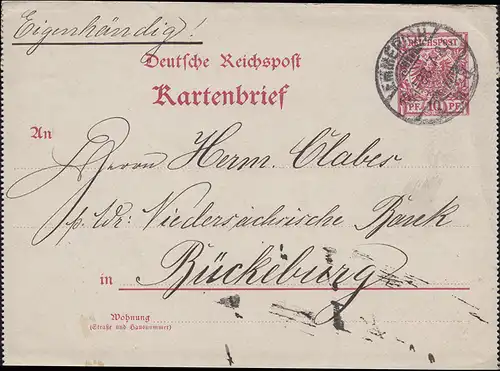 Eigenhändig!
REICHSPOST
Deutsche Reichspost
10
PF. PF.
Kartenbrief
An
Herrn Herm. Clabes
p. Adr: Niedersächsische Bank
in Bückeburg
Wohnung
(Straße und Hausnummer)